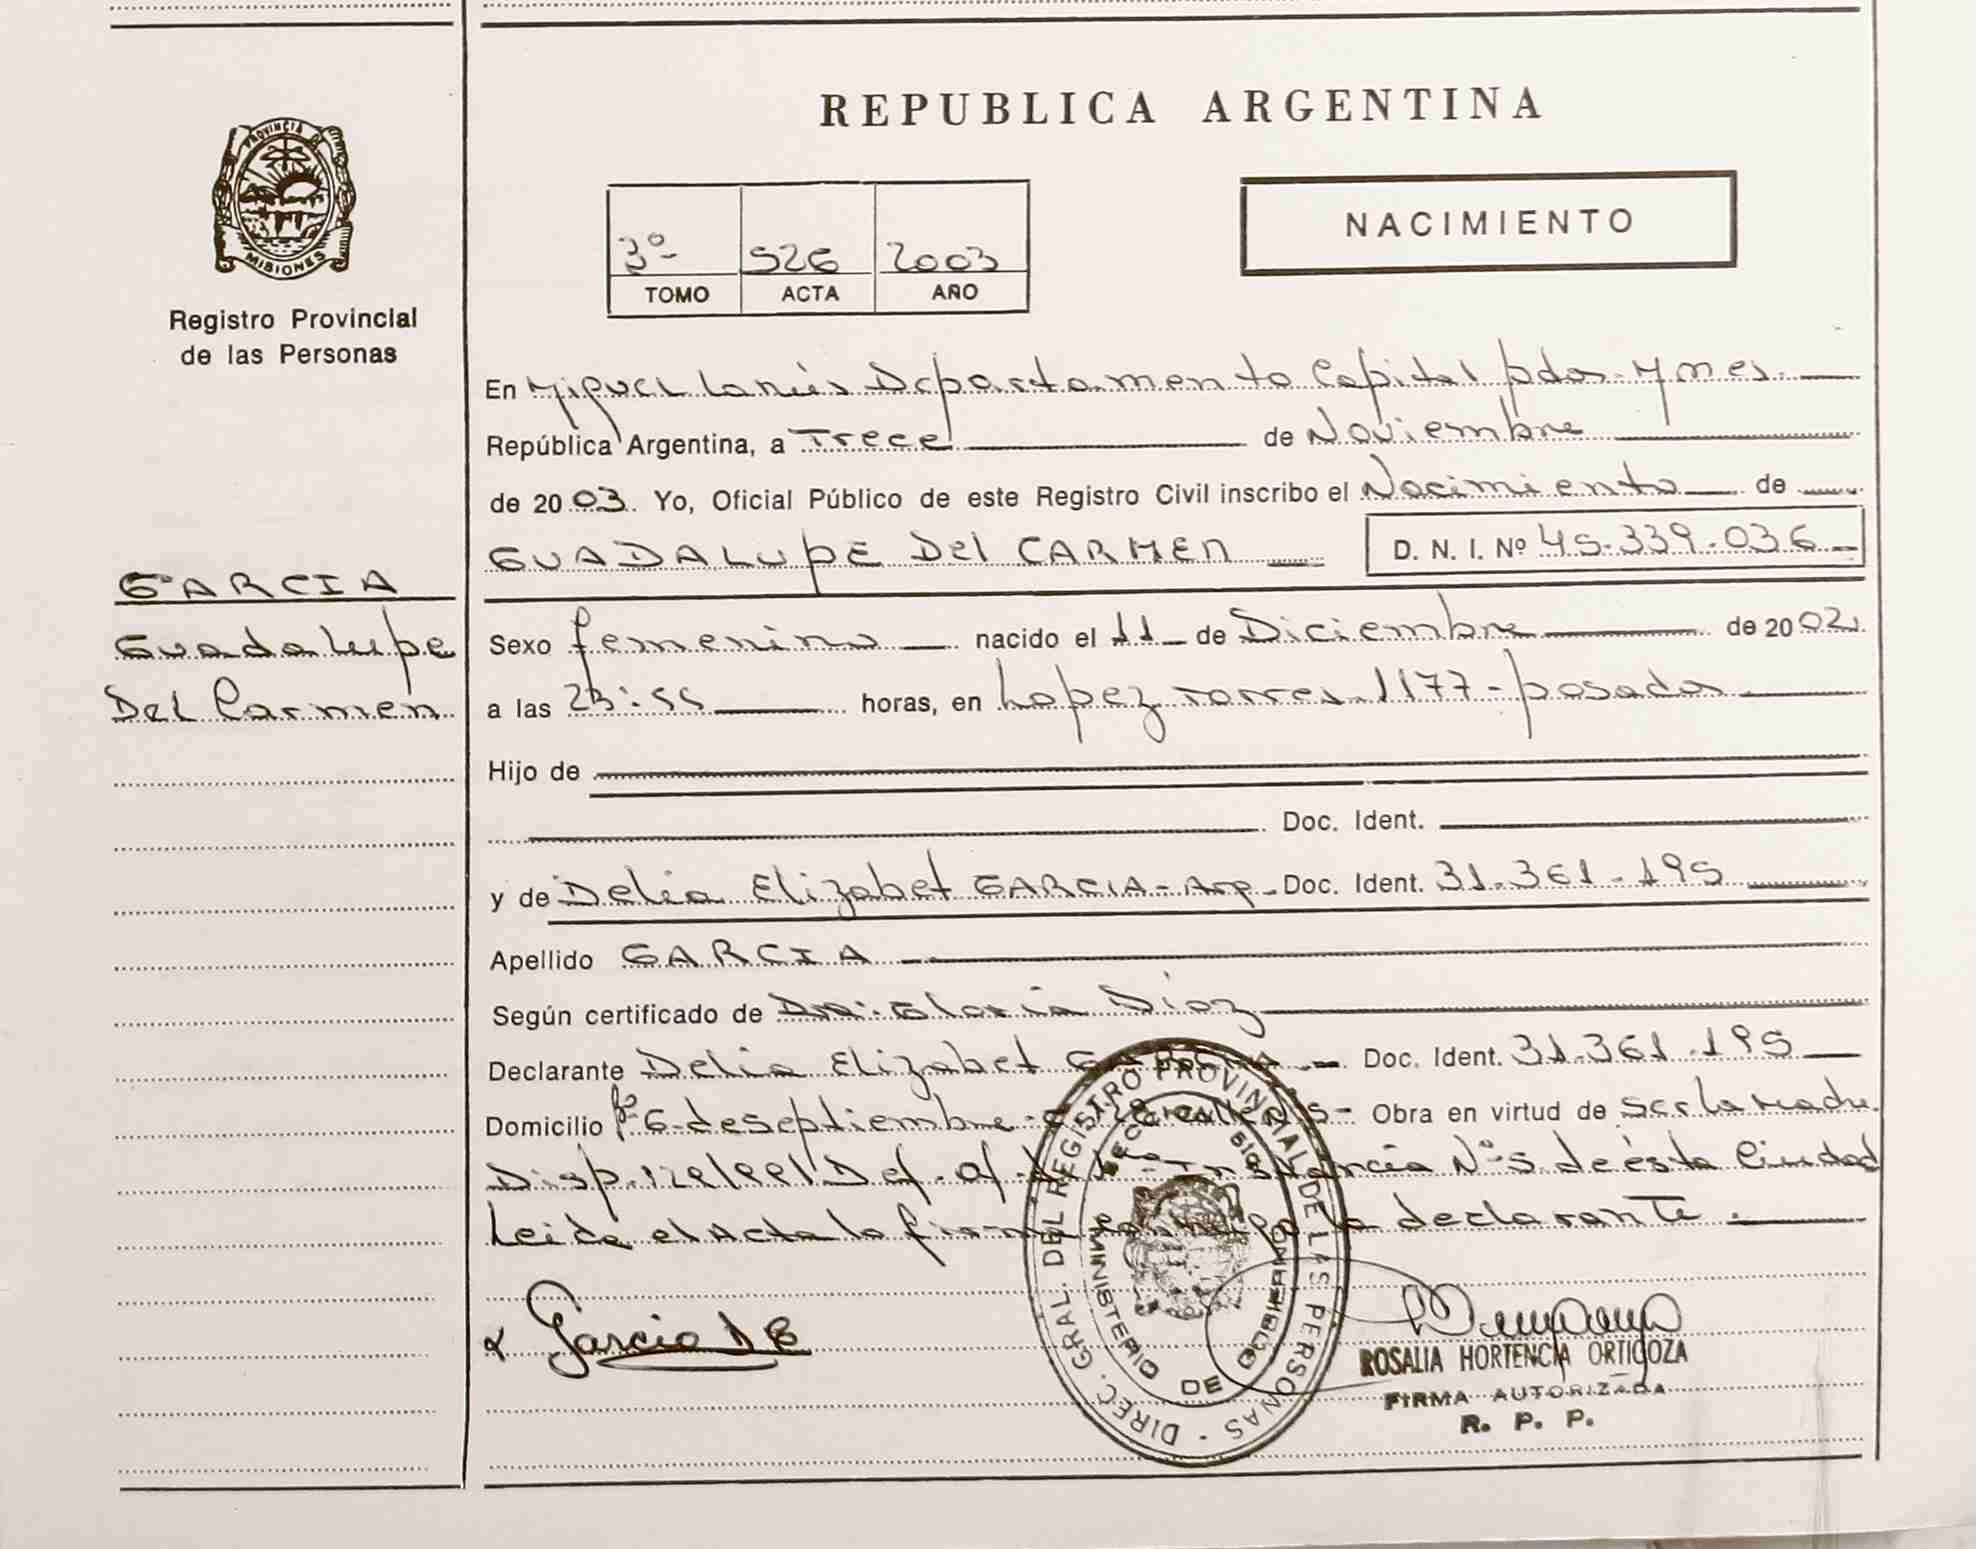 REPUBLICA ARGENTINA
PROVINCIA DE
MISIONES
Registro Provincial
de las Personas
NACIMIENTO
3º 526 2003
TOMO ACTA AÑO
En Miguel Lanús Departamento Capital pdas. Mnes.
República Argentina, a Trece de Noviembre
de 2003. Yo, Oficial Público de este Registro Civil inscribo el Nacimiento de
GUADALUPE Del CARMEN D. N. I. Nº 45.339.036
GARCIA
Guadalupe
Del Carmen
Sexo femenino nacido el 11 de Diciembre de 2002
a las 23:55 horas, en Lopez Torres 1177 - posadas
Hijo de
Doc. Ident.
y de Delia Elizabet GARCIA - Arg - Doc. Ident. 31.361.195
Apellido GARCIA
Según certificado de Dra. Gloria Diaz
Declarante Delia Elizabet GARCIA Doc. Ident. 31.361.195
Domicilio Bº 6 de septiembre Obra en virtud de ser la Madre
Disp. Def. Of. Instancia Nº 5 de ésta Ciudad
Leida el Acta la firma la declarante.
Garcia D E
DIREC. GRAL. DEL REGISTRO PROVINCIAL DE LAS PERSONAS
MINISTERIO DE GOBIERNO
ROSALIA HORTENCIA ORTIGOZA
FIRMA AUTORIZADA
R. P. P.